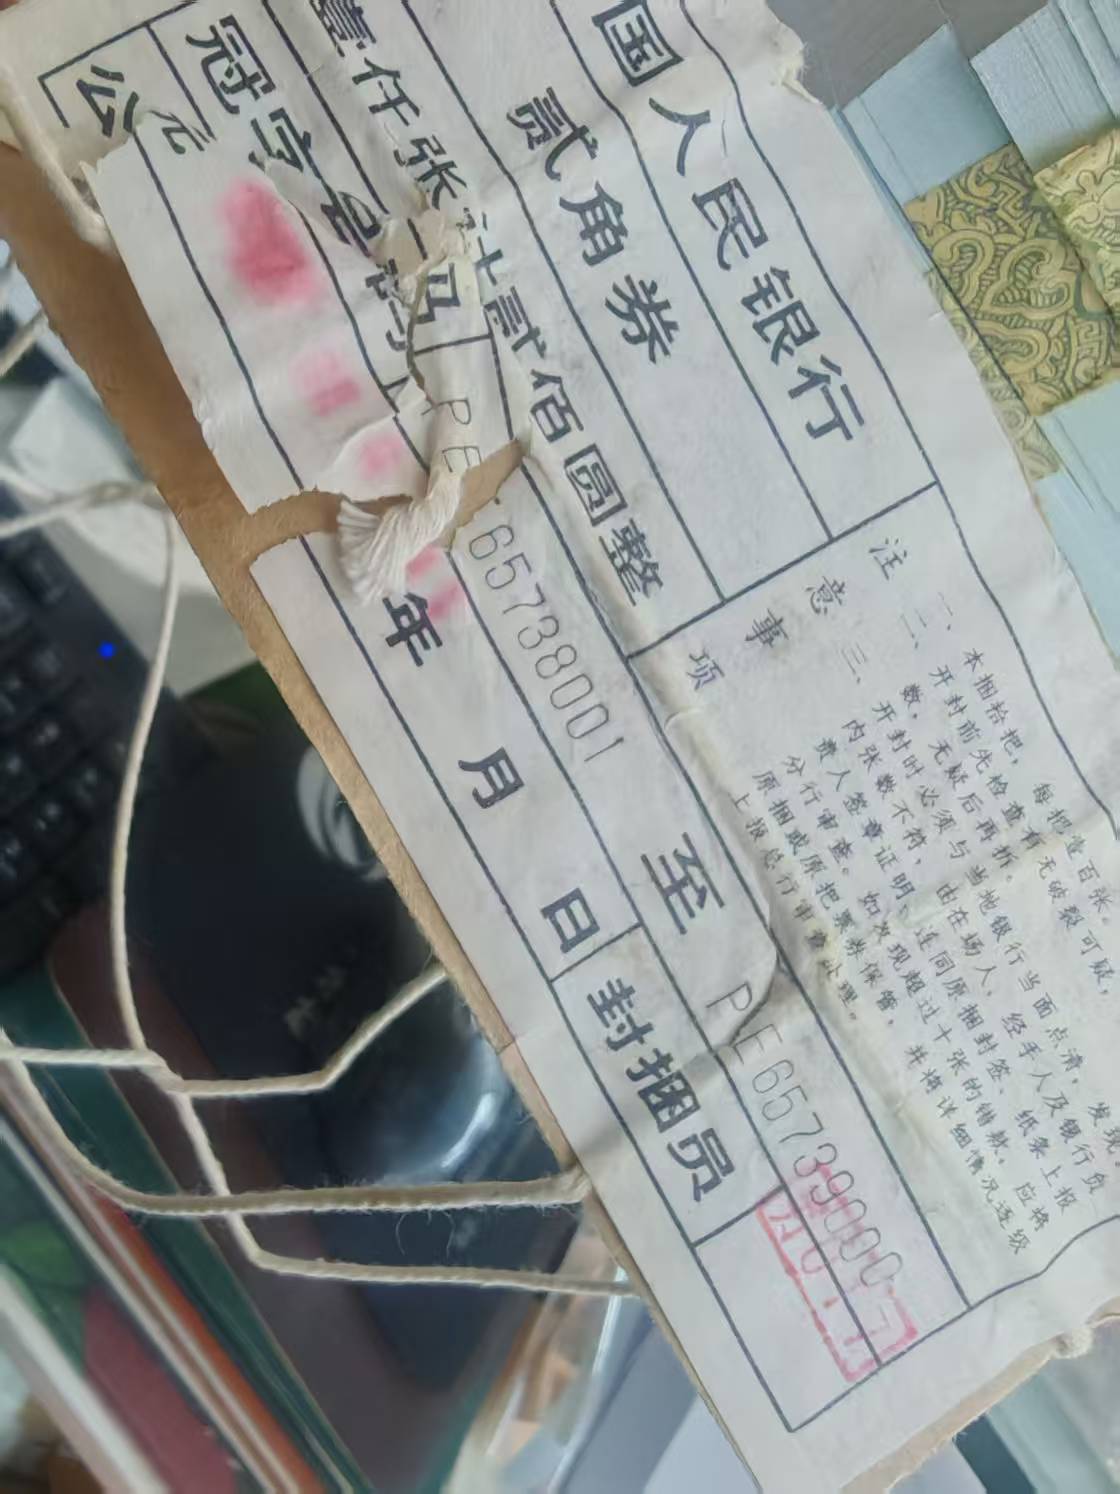 国人民银行
贰角券
壹仟张计贰佰圆整
冠字号码
PE65738001
至
PE65739000
公元
年
月
日
封捆员
注意事项
一、本捆拾把，每把壹百张。
二、开封前先检查有无破裂可疑，
数，无疑后再拆。
三、开封时必须与当地银行当面点清，发现
内张数不符，由在场人，经手人及银行负
责人签章证明，连同原捆封签、纸条上报
分行审查。如发现超过十张的错款，应将
原捆或原把票券保管，并将详细情况逐级
上报总行审查处理。